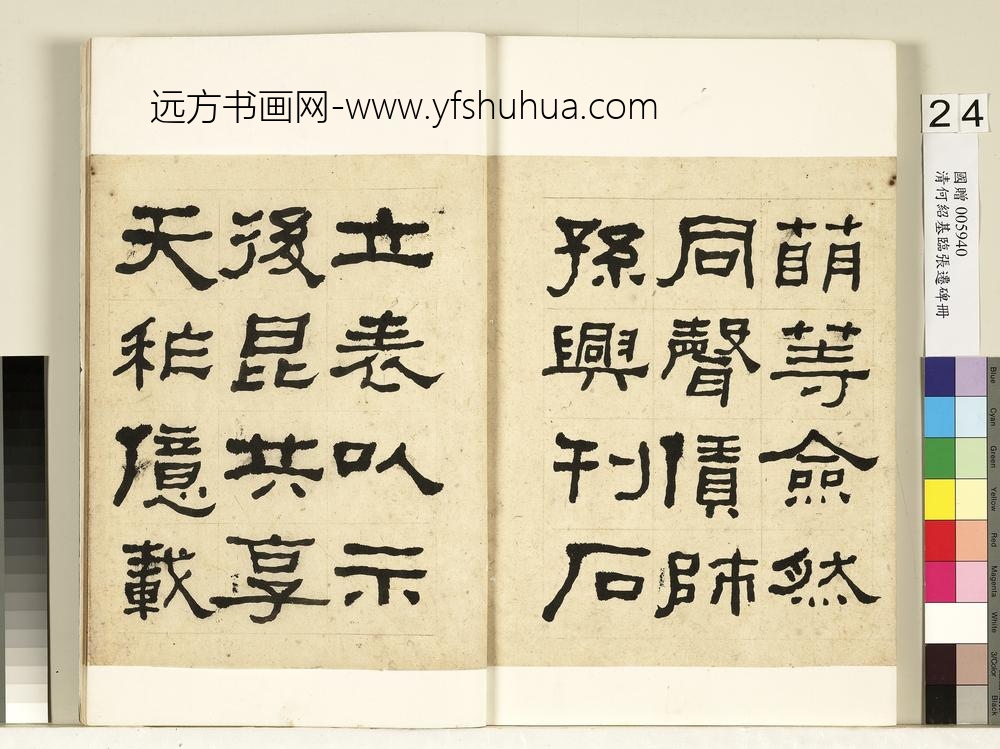 远方书画网-www.yfshuhua.com
萠等僉然
同聲賃師
孫興刊石
立表以示
後昆共享
天秨億載
24
國贈 005940
清何紹基臨張遷碑冊
Blue
Cyan
Green
Yellow
Red
Magenta
White
3/Color
Black